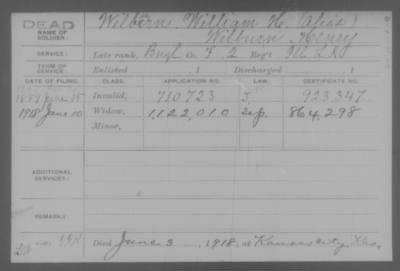 DEAD Wilborn, William H. (Alias)
NAME OF SOLDIER: Wilburn Henry
SERVICE: Late rank, Bugl Co. F 2 Reg't Ill. L.A.
TERM OF SERVICE: Enlisted 1 Discharged 1
DATE OF FILING. CLASS. APPLICATION NO. LAW. CERTIFICATE NO.
1889 June 15 Invalid, 710723 J. 923347
1918 June 10 Widow, 1,122,010 864,298
Minor,
ADDITIONAL SERVICES:
REMARKS:
Died June 3 1918, at Kansas City, Kas.